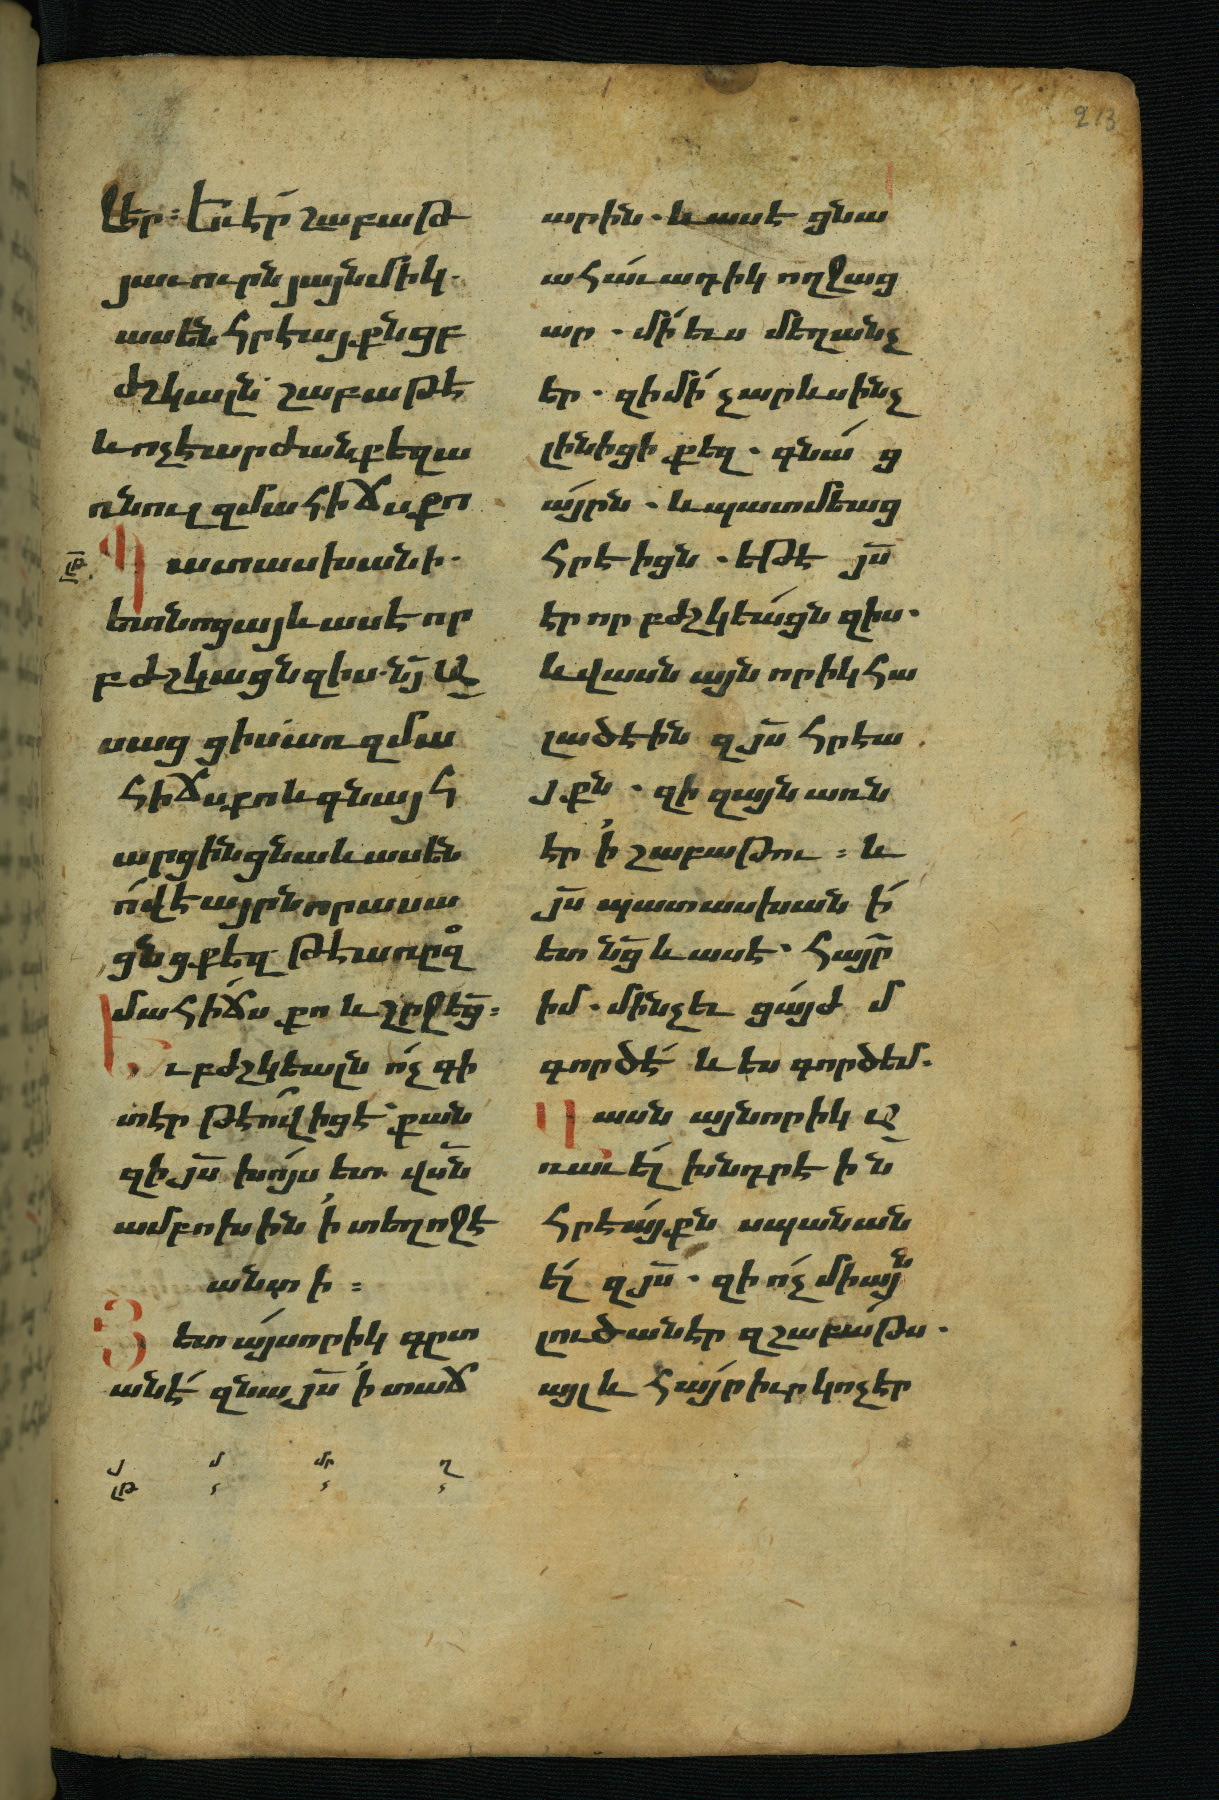 213
ջէր։ Եւ էր շաբաթ
յաւուրն յայնմիկ.
ասէն հրէայքն ցբ
ժշկալն շաբաթ է
և ոչ է արժան քեզ ա
ռնուլ զմահիճս քո
Պատասխանի.
ետ նոցա և ասէ որ
բժշկացն զիս. նյ Ա
սաց ցիս առ զմա
հիճս քո և գնա յ հ
արցին ցնա և ասեն
ո՞վ է այրն որ ասա
ցն ց քեզ թէ առ զ
մահիճս քո և շրջեց։
Եւ բժշկեալն ո՛չ գի
տէր թէ ո՛վ իցէ քան
զի յս խոյս ետ վսն
ամբոխին ի տեղոջէ
անտի։
Յետ այսորիկ գըտ
անէ զնա յս ի տաճ
արին. և ասէ ցնա
ահաւադիկ ողջաց
ար. մի ևս մեղանչ
եր. զի մի չար ևս ինչ
լինիցի քեզ. գնաց
այրն. և պատմեաց
հրէիցն. եթէ յս
էր որ բժշկեացն զիս.
և վասն այնորիկ հա
լածէին զյս հրէա
յքն. զի զայն առն
էր ի շաբաթու։ և
յս պատասխանի
ետ նց և ասէ. հայր
իմ. մինչև ցայժմ
գործէ և ես գործեմ.
Վասն այնորիկ ա
ռաւել խնդրէին
հրէայքն սպանան
ել զյս. զի ոչ միայն
լուծանէր զշաբաթս.
այլ և հայր իւր կոչէր
յ մ մր ղ
լթ